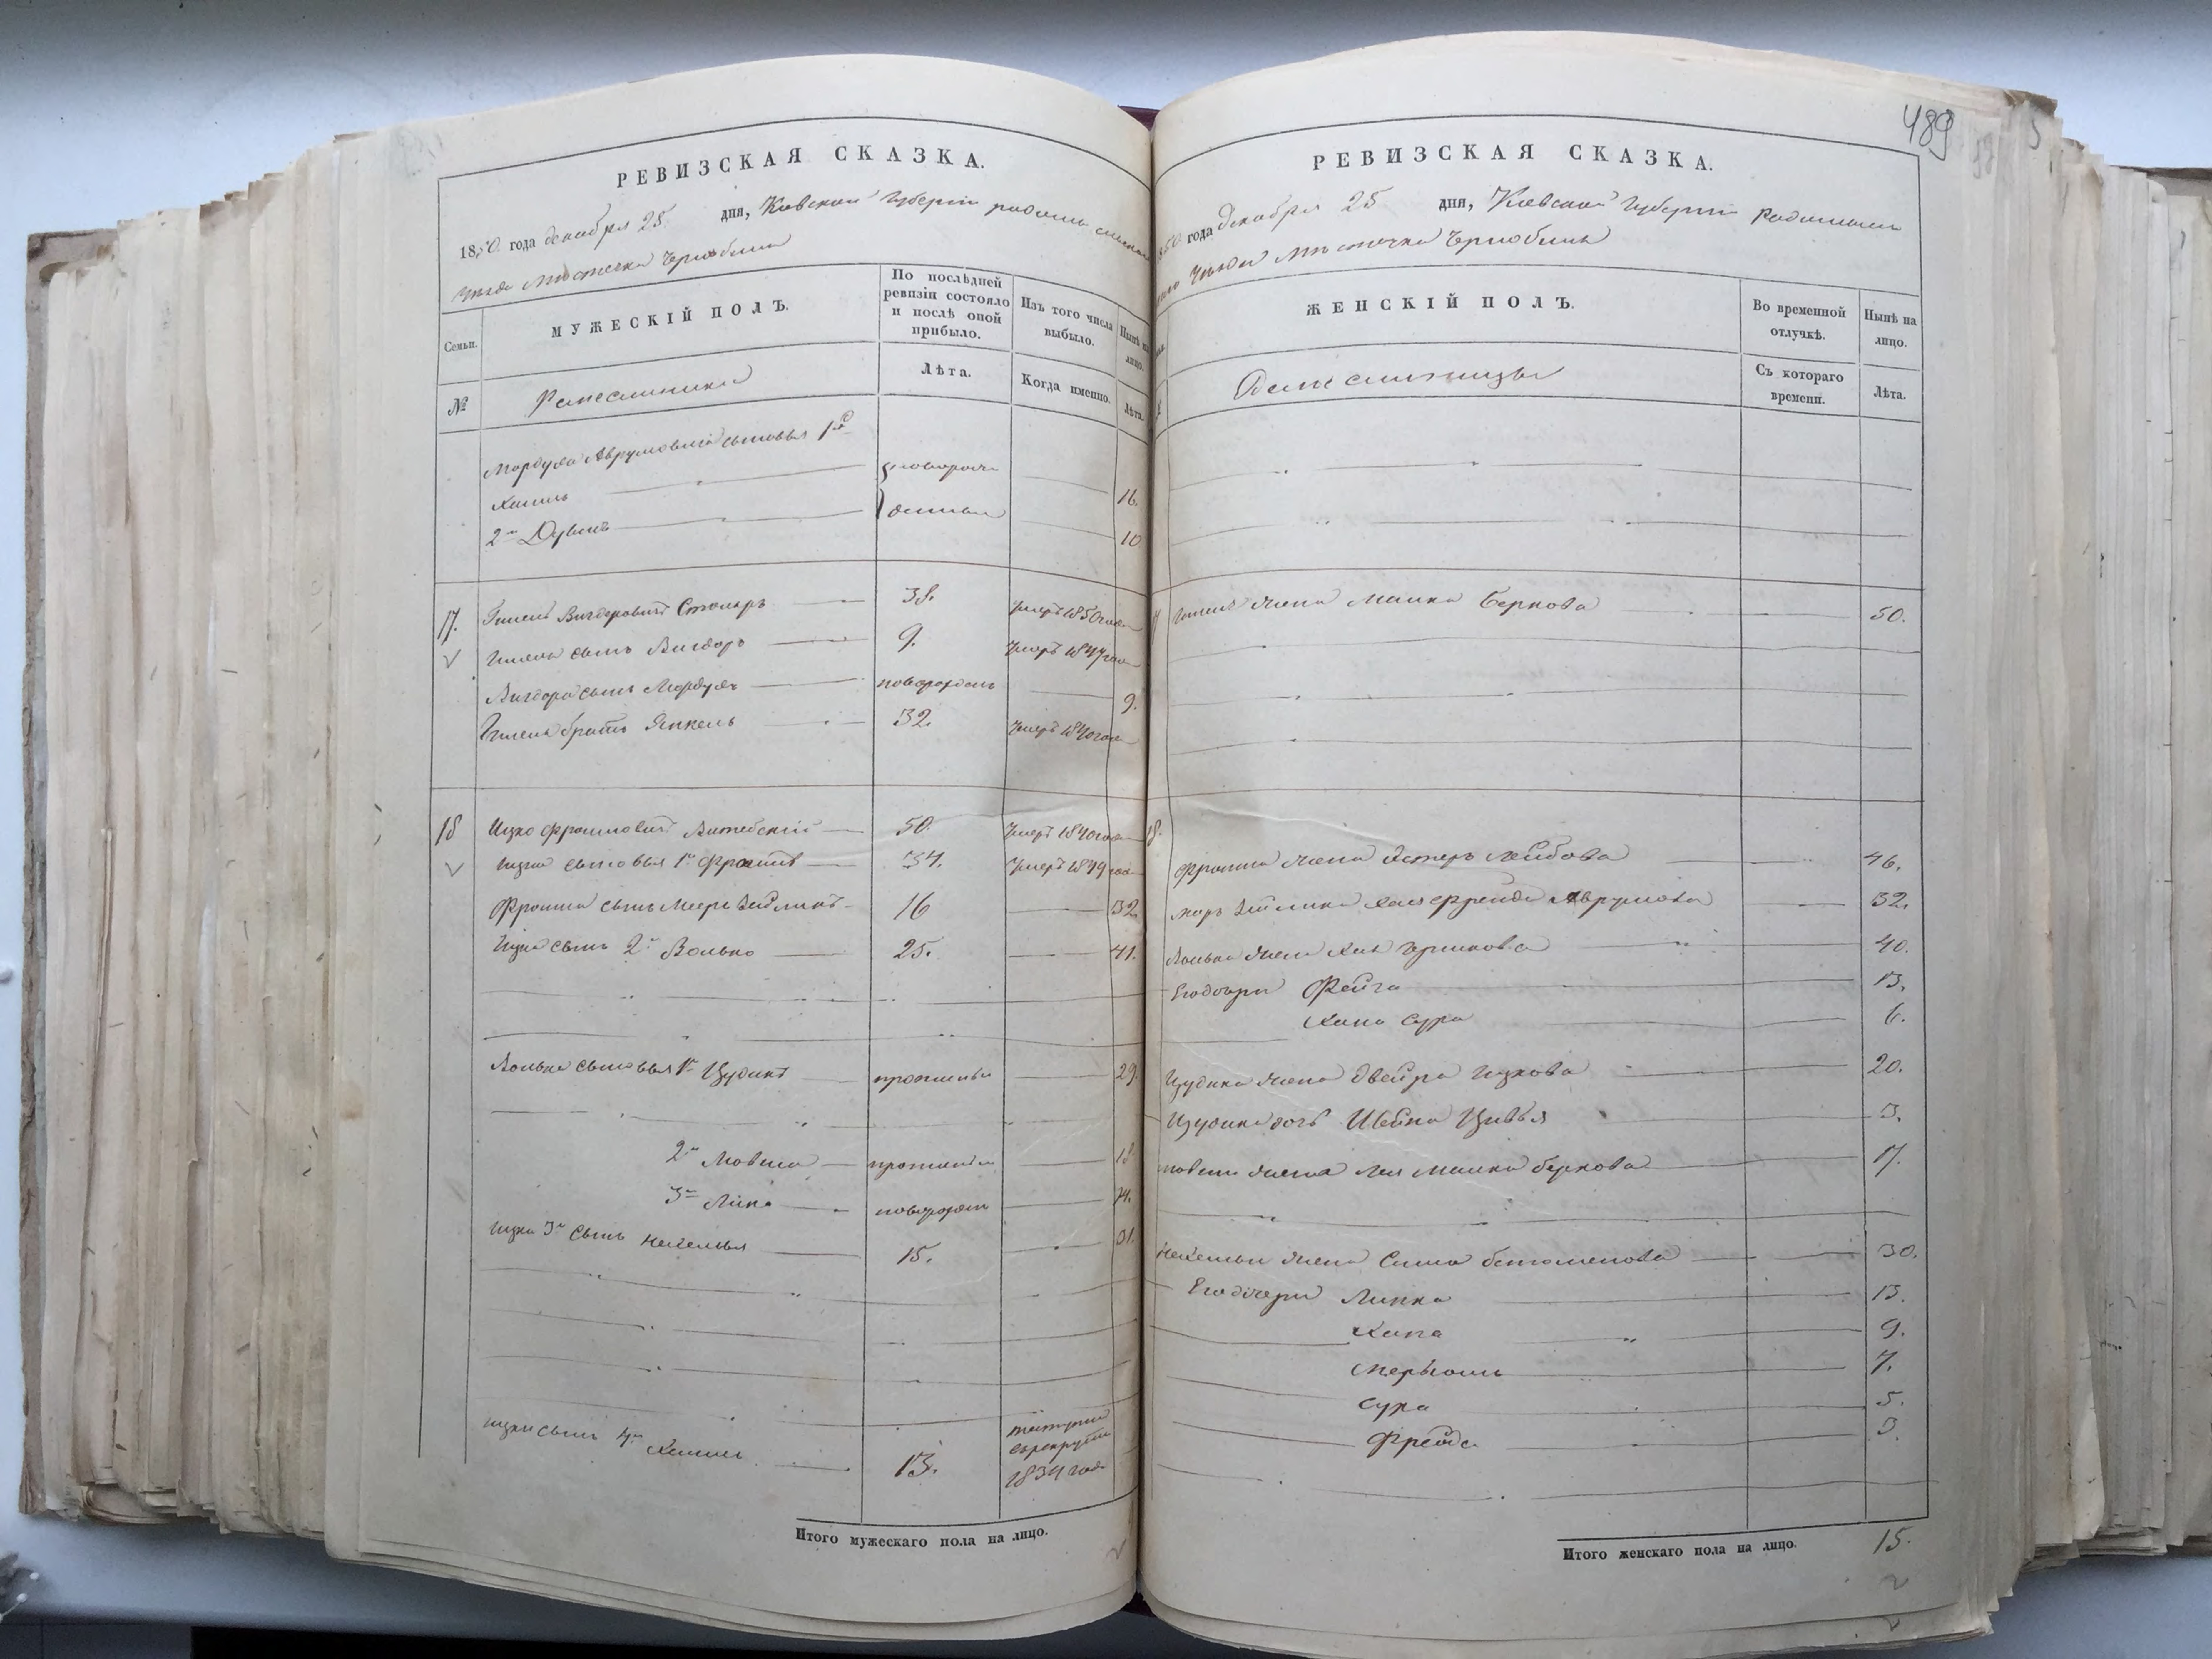 РЕВИЗСКАЯ СКАЗКА.
1850. года декабря 25 дня, Киевской Губернiи радомысльскаго
уезда Местечка Чернобыля
Семьи.
МУЖЕСКІЙ ПОЛЪ.
По послѣдней ревизіи состояло и послѣ оной прибыло.
Изъ того числа выбыло.
Нынѣ на лицо.
№
Ремесленники
Лѣта.
Когда именно.
Лѣта.
Мордуха Аврумовича сыновья 1й
Хаимъ 16.
2й 10
17. Вигдоровичъ Столяръ 38. Умеръ 1850 года
сынъ Вигдоръ 9. Умеръ 1847 года
Вигдора сынъ Мордухъ новорожден 9.
братъ Янкель 32. Умеръ 1840 года
18 Ицко Фроимовичъ Витебскiй 50. Умеръ 1840 года
Ицка сыновья 1й Фроимъ 34. Умеръ 1849 года
Фроима сынъ Мееръ Зейликъ 16 32.
Ицка сынъ 2й Волько 25. 41.
Волька сыновья 1й Цудикъ 29.
2й Мовша 18
3й Липа новорожден 14.
Ицка 3й сынъ 15. 31.
Ицка сынъ 4й Хаимъ 13. 1834 года
Итого мужескаго пола на лицо.
489
РЕВИЗСКАЯ СКАЗКА.
1850 года Декабря 25 дня, Киевской Губернiи Радомысль
скаго Уезда Местечка Чернобыля
ЖЕНСКІЙ ПОЛЪ.
Во временной отлучкѣ.
Нынѣ на лицо.
Съ котораго времени.
Лѣта.
жена Малка Беркова 50.
18.
Фроима жена Эстеръ Лейбова 46.
Меера Зейлика Хая Фрейда Аврумова 32.
Волька жена Хая 40.
Его дочери Фейга 13.
Хана Сура 6.
Цудика жена Двейра Ицкова 20.
Цудика дочь Шейна Цивья 3.
Мовши жена Лея Малка Беркова 17.
жена Сима 30.
Его дочери Липка 13.
Хана 9.
7.
Сура 5.
Фрейда 3.
Итого женскаго пола на лицо. 15.